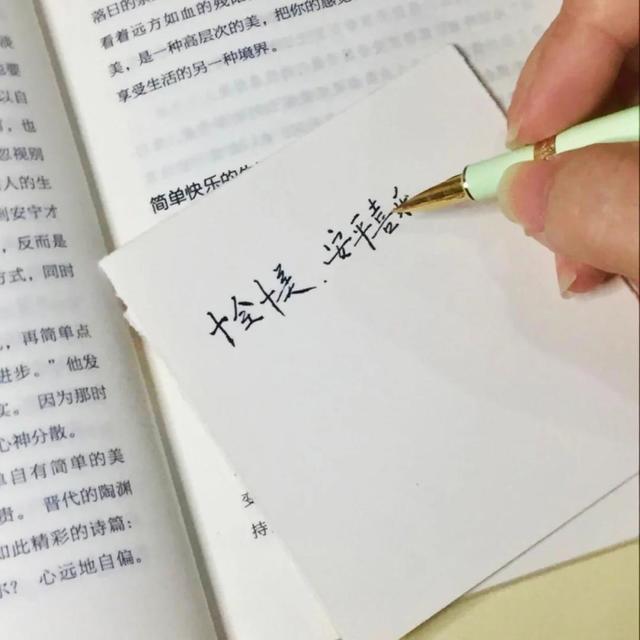 淡
以自
，也
忽视别
人的生
到安宁才
，反而是
方式，同时
，再简单点
进步。” 他发
实。 因为那时
心神分散。
单自有简单的美
贵。 晋代的陶渊
如此精彩的诗篇：
尔？ 心远地自偏。
落日的
看着远方如血的残
美，是一种高层次的美，把你的感
享受生活的另一种境界。
简单快乐的
十全十美.安平喜
持